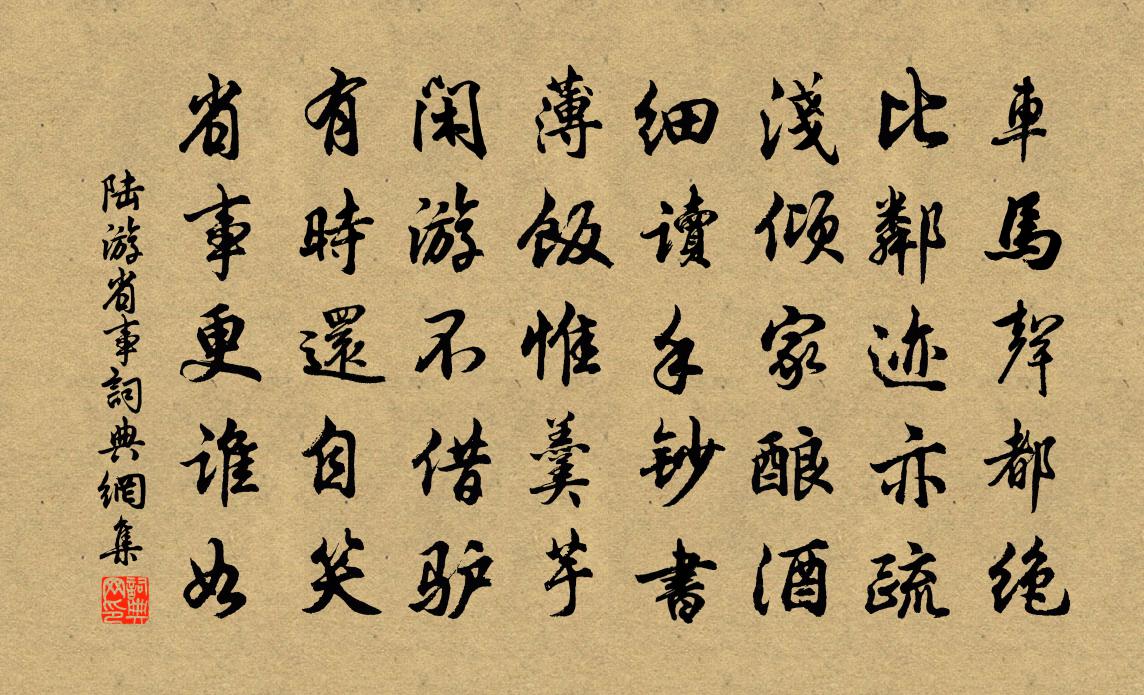 車馬聲都絶
比鄰迹亦疏
淺傾家酿酒
細讀手鈔書
薄飯惟羹芋
閑游不借驴
有時還自笑
省事更谁如
陆游省事詞典網集
詞典网印